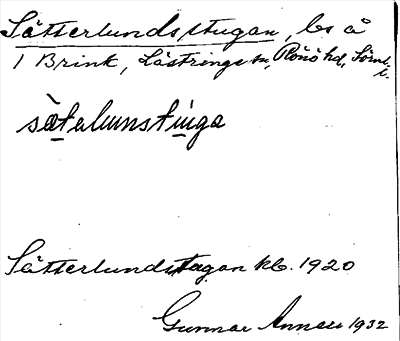 Sätterlundsstugan, ls å
1 Brink, Lästringe sn, Rönö hd, Söml.
sä̀talunstúga
Sätterlundstugan kb. 1920
Gunnar Annell 1932